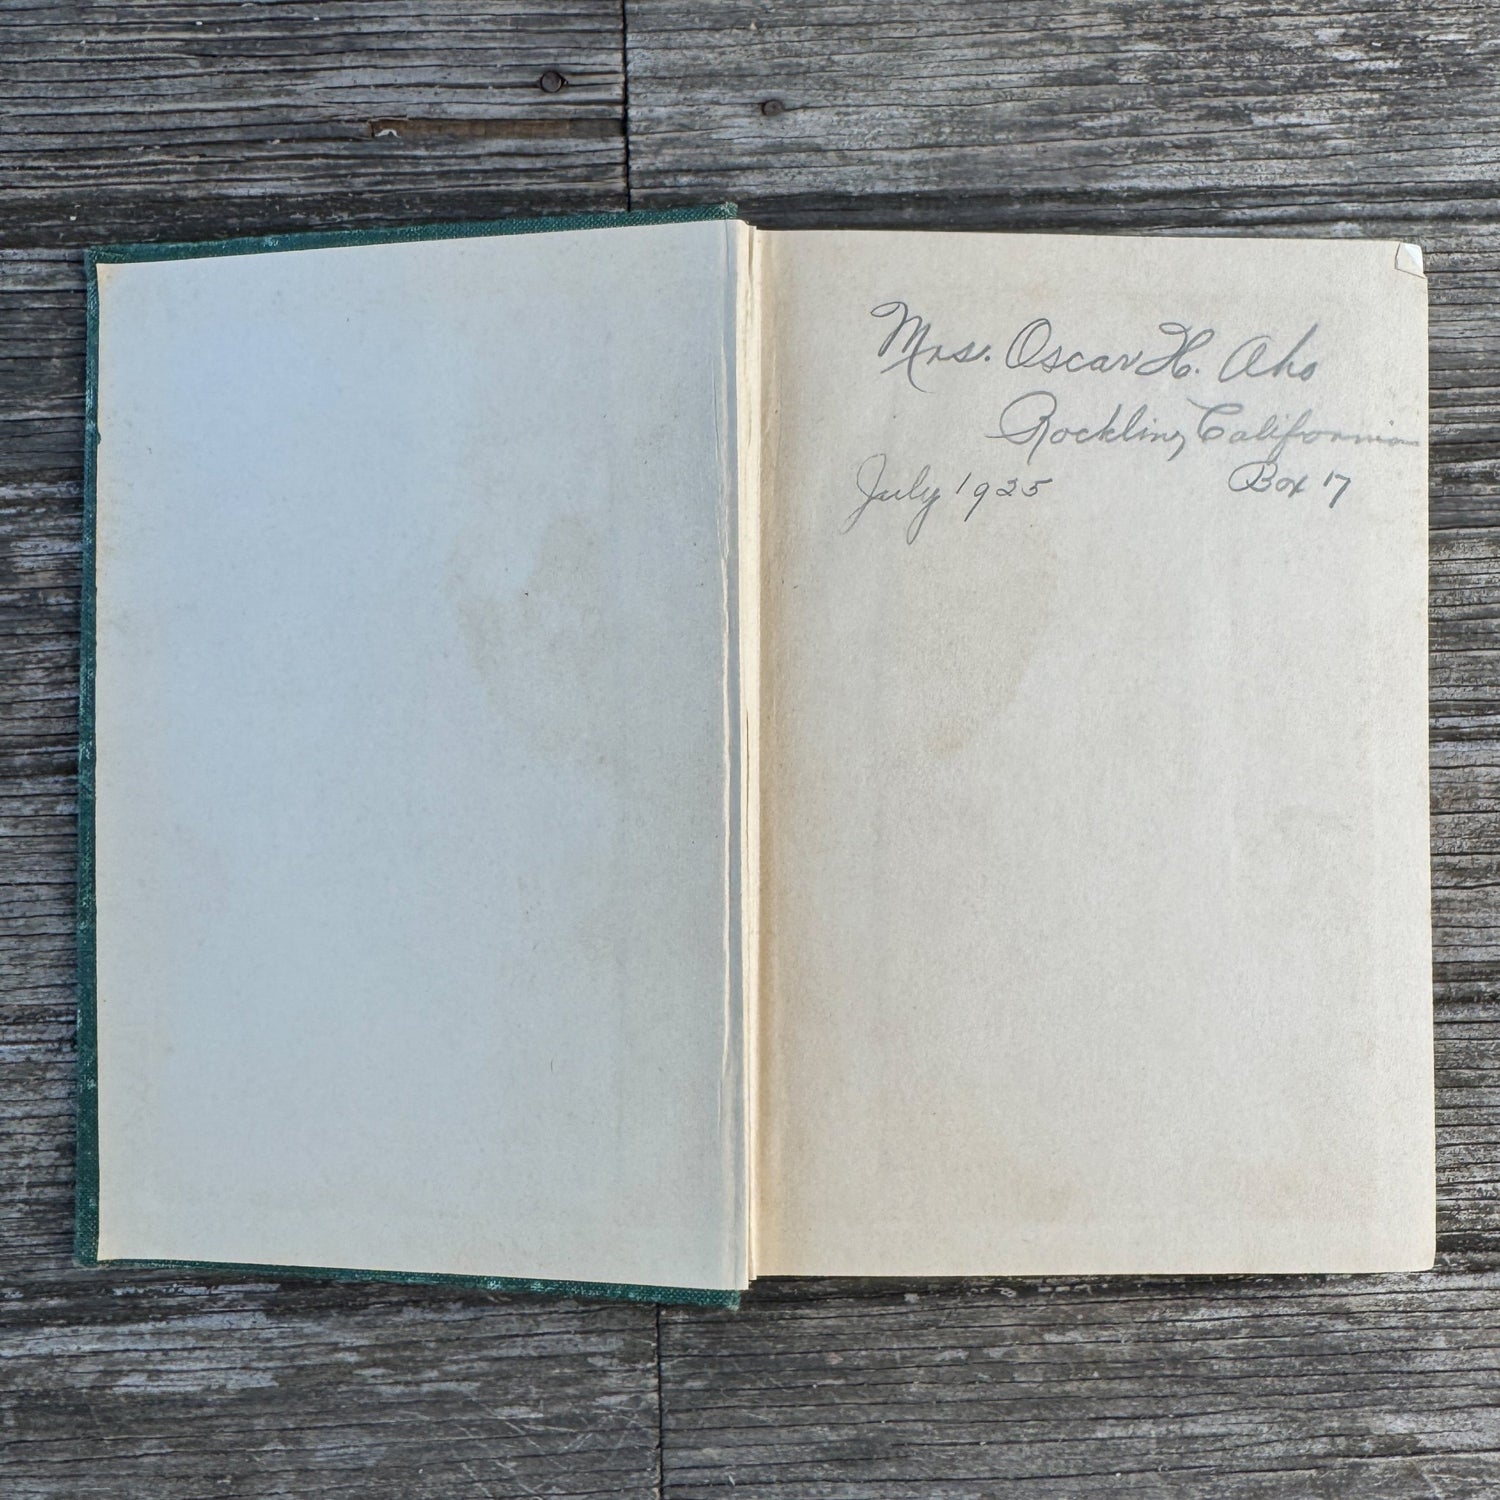 Mrs. Oscar H. Aho
Rocklin, California
July 1925 Box 17